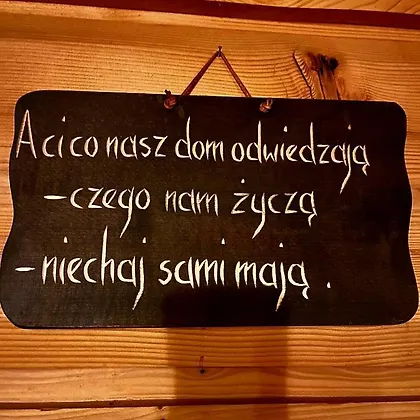 A ci co nasz dom odwiedzają
- czego nam życzą
- niechaj sami mają .